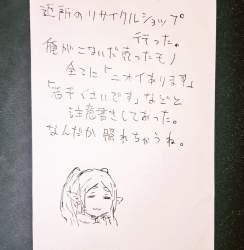 近所のリサイクルショップ
行った。
俺がこないだ売ったモノ
全てに「ニオイあります」
「若干くさいです」などと
注意書きしてあった。
なんだか照れちゃうね。